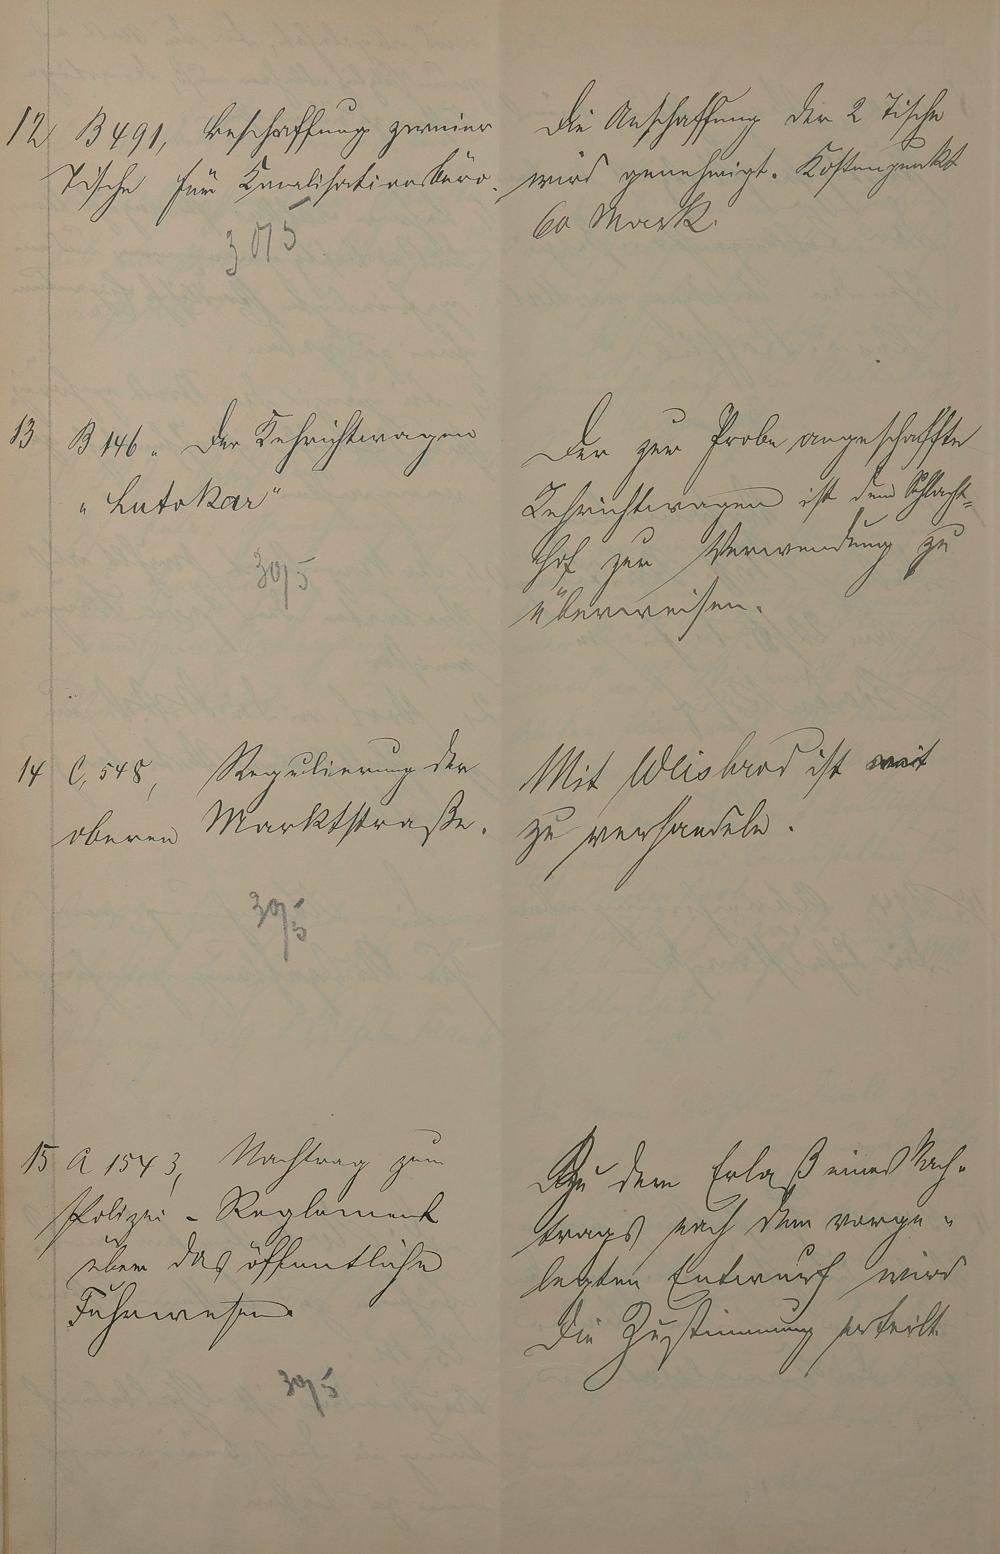 12 B 491, Beschaffung zweier
Tische für Kanalisationsbüro.
30/5
Die Anschaffung der 2 Tische
wird genehmigt. Kostenpunkt
60 Mark.
13 B 146. Der Kehrichtwagen
"Lutokar"
30/5
Der zur Probe angeschaffte
Kehrichtwagen ist dem Schlacht=
hof zur Verwendung zu
überweisen.
14 C, 548, Regulierung der
oberen Marktstraße.
30/5
Mit Weisbrod ist
zu verhandeln.
15 A 1543, Nachtrag zum
Polizei-Reglement
über das öffentliche
Fuhrwesen.
30/5
Zu dem Erlaß eines Nach-
trags nach dem vorge-
legten Entwurf wird
die Zustimmung erteilt.